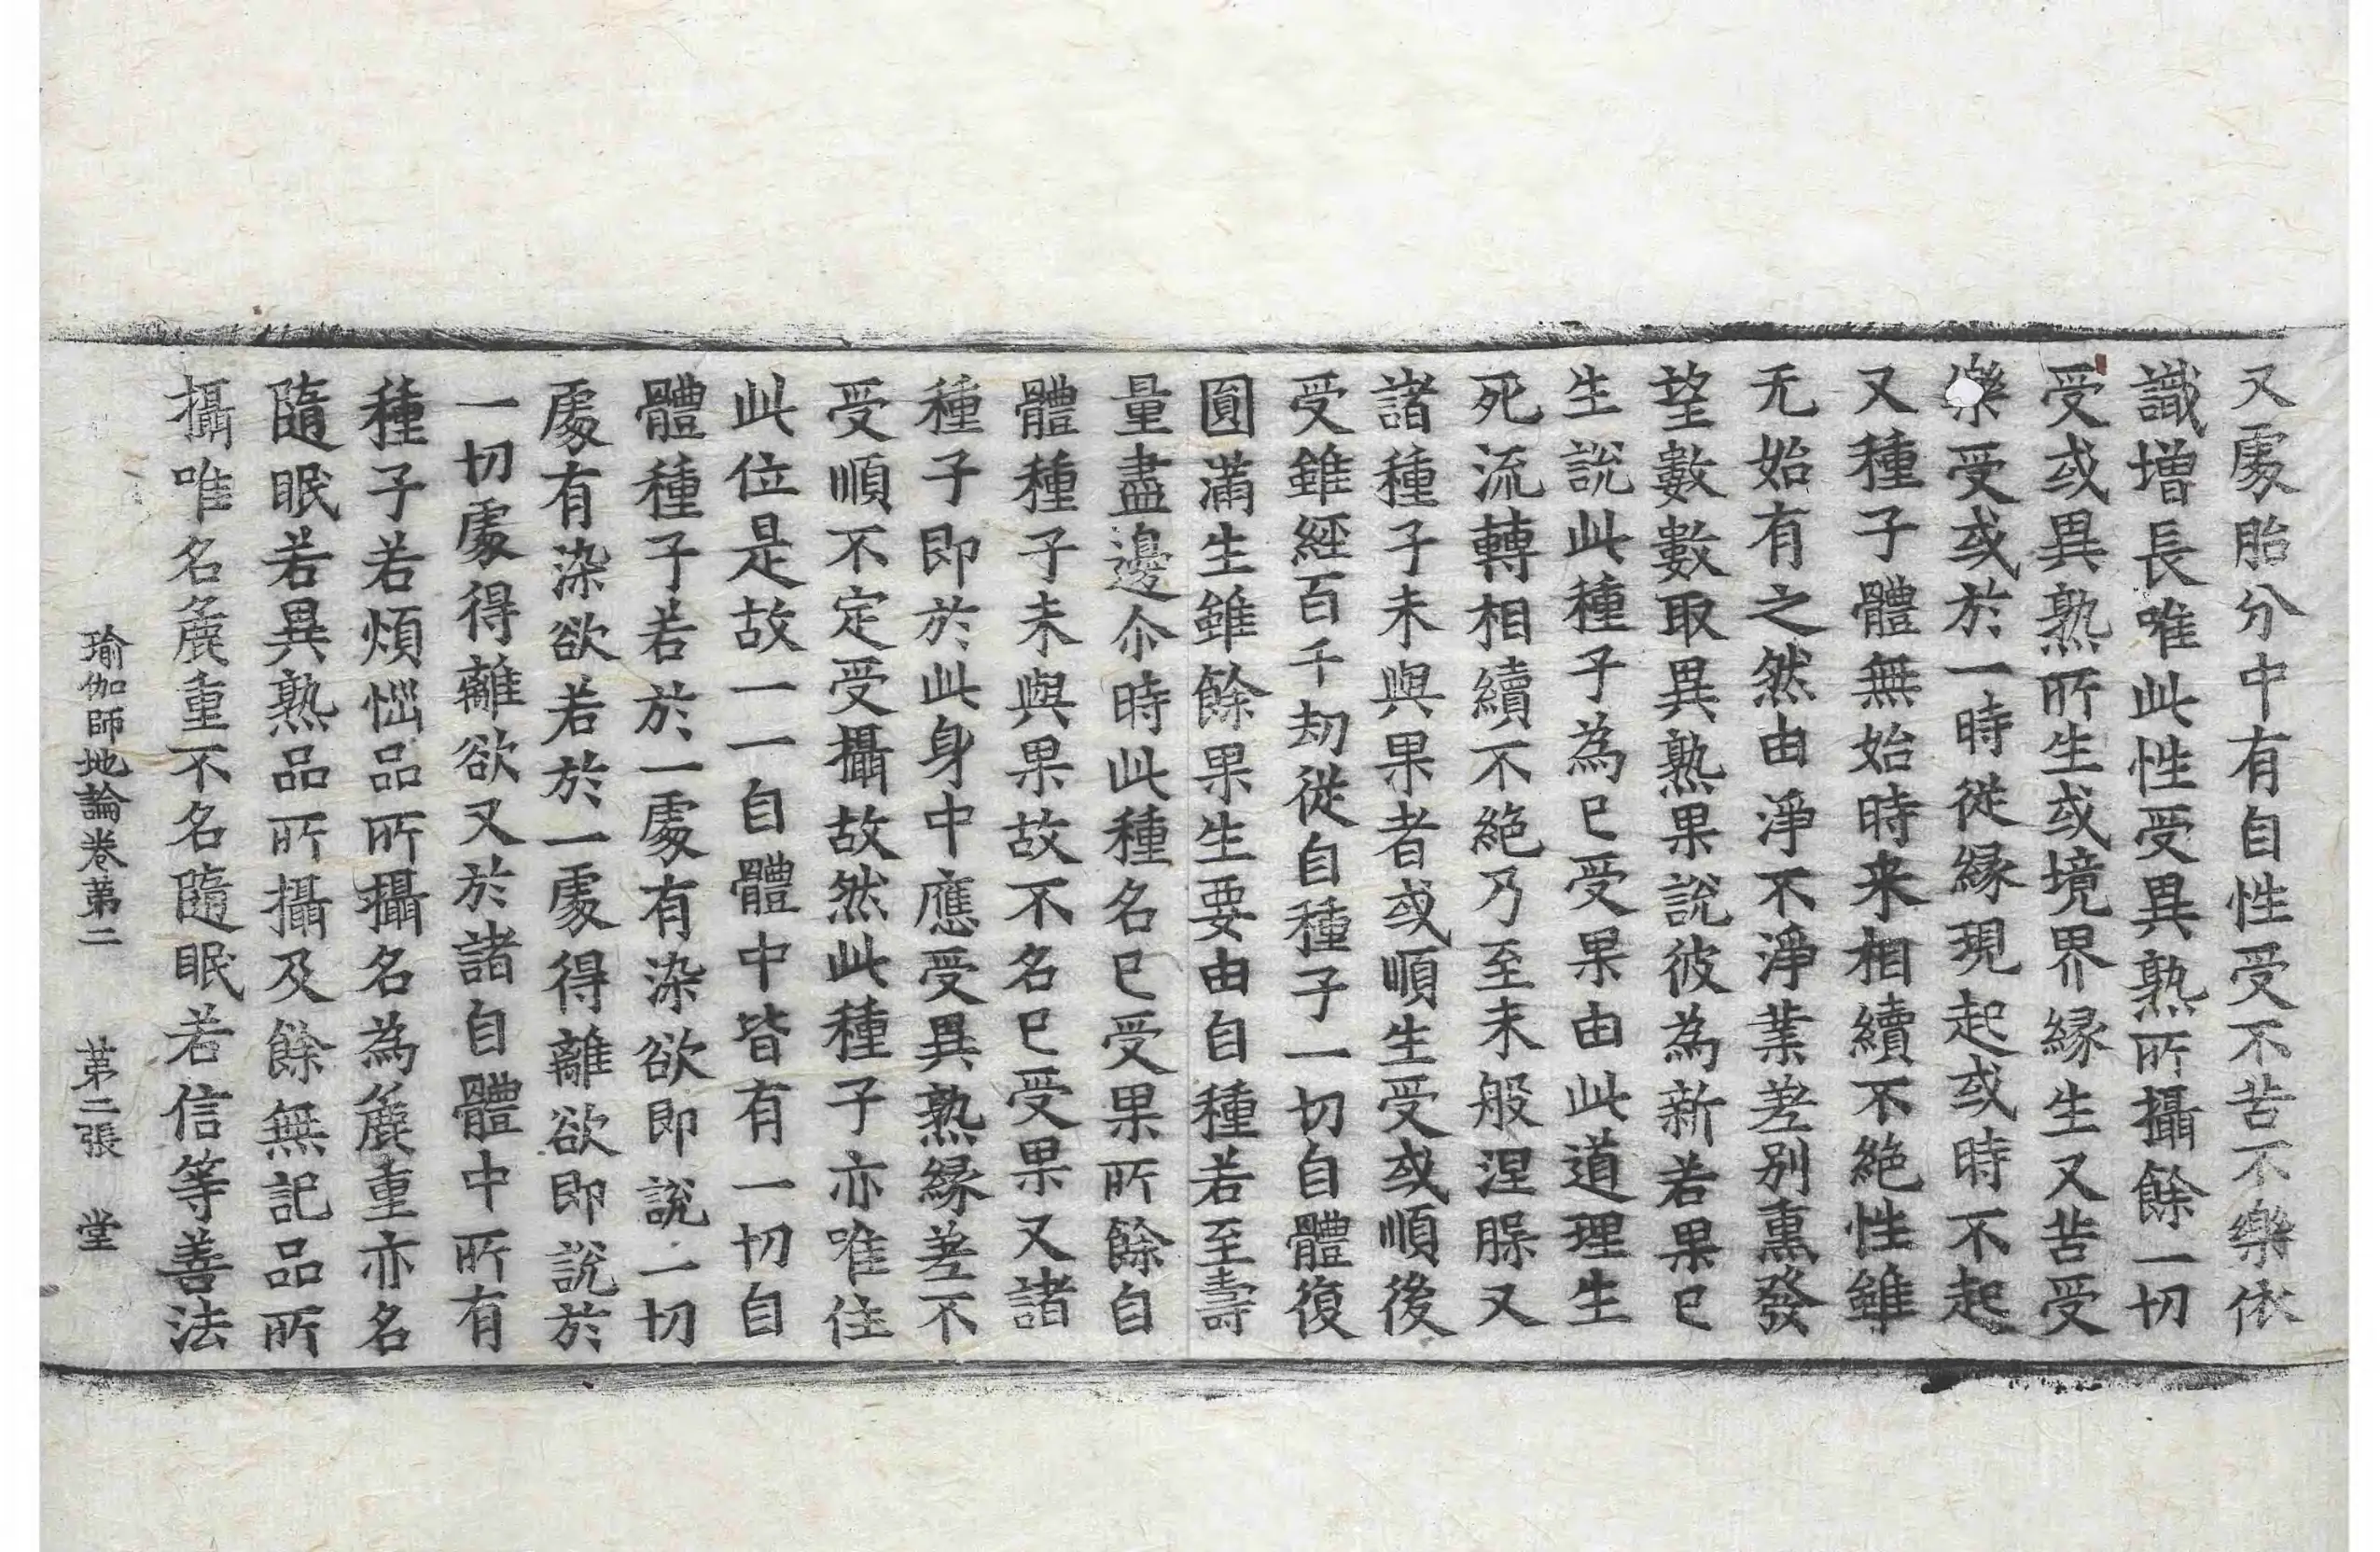 又處胎分中有自性受不苦不樂依
識增長唯此性受異熟所攝餘一切
受或異熟所生或境界緣生又苦受
樂受或於一時從緣現起或時不起
又種子體無始時来相續不絶性雖
无始有之然由淨不淨業差別熏發
望數數取異熟果說彼為新若果已
生說此種子為已受果由此道理生
死流轉相續不絶乃至未般涅槃又
諸種子未與果者或順生受或順後
受雖經百千劫從自種子一切自體復
圓滿生雖餘果生要由自種若至壽
量盡邊尒時此種名已受果所餘自
體種子未與果故不名已受果又諸
種子即於此身中應受異熟緣差不
受順不定受攝故然此種子亦唯住
此位是故一一自體中皆有一切自
體種子若於一處有染欲即說一切
處有染欲若於一處得離欲即說於
一切處得離欲又於諸自體中所有
種子若煩惱品所攝名為麁重亦名
隨眠若異熟品所攝及餘無記品所
攝唯名麁重不名隨眠若信等善法
瑜伽師地論卷第二 第二張 堂